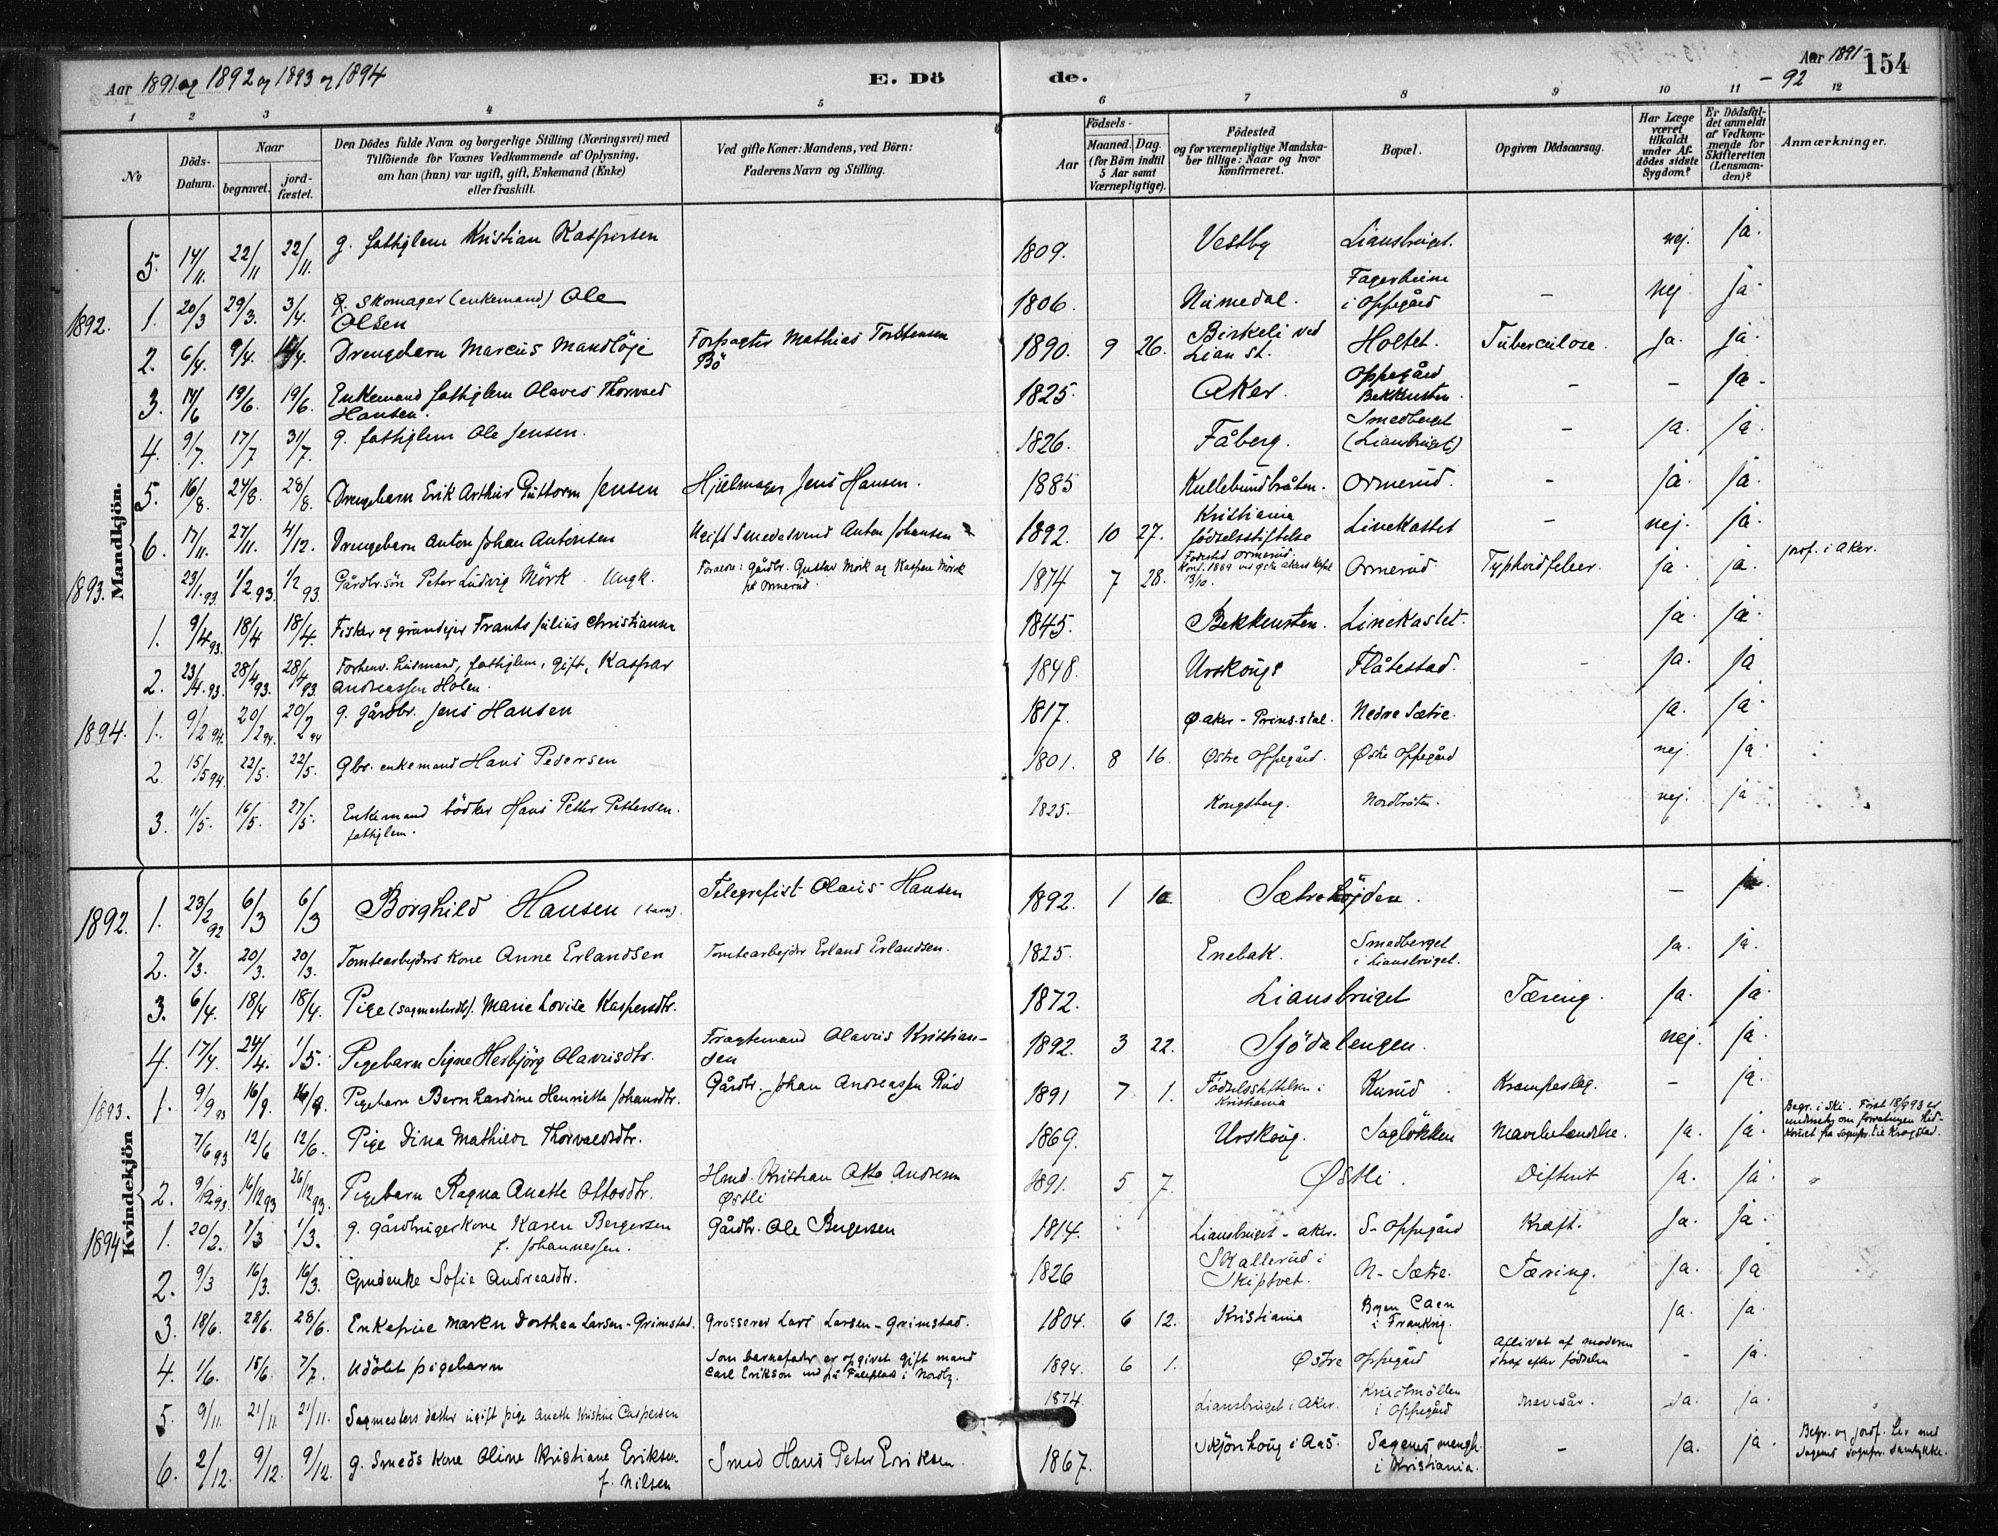 Aar 1891 og 1892 og 1893 og 1894 E. Dö de. Aar 1891-92 154
1 2 3 4 5 6 7 8 9 10 11 12
No Döds-Datum. Naar begravet. jordfæstet. Den Dödes fulde Navn og borgerlige Stilling (Næringsvei) med Tilföiende for Voxnes Vedkommende af Oplysning, om han (hun) var ugift, gift, Enkemand (Enke) eller fraskilt. Ved gifte Koner: Mandens, ved Börn: Faderens Navn og Stilling. Födsels- Aar Maaned. Dag. (for Börn indtil 5 Aar samt Værnepligtige). Födested og for værnepligtige Mandskaber tillige: Naar og hvor konfirmeret. Bopæl. Opgiven Dödsaarsag. Har Læge været tilkaldt under Afdödes sidste Sygdom? Er Dödsfaldet anmeldt af Vedkommende for Skifteretten (Lensmanden)? Anmærkninger.
Mandkjön.
5. 14/11. 22/11 22/11. g. fattiglem Kristian Kaspersen 1809. Vestby Liansbruget. nej. ja.
1892. 1. 20/3 29/3. 3/4. g. Skomager (enkemand) Ole Olsen 1806. Numedal. Fagerheim i Oppegård - nej ja.
2. 6/4. 9/4. Drengebarn Marcus Mandløje Forpagter Mathias Torstensen Bö 1890. 9 26. Birkeli ved Lian st. Holtet. Tuberculose. ja. ja.
3. 14/6 19/6. 19/6. Enkemand fattiglem Olaves Thorvald Hansen. 1825. Aker. Oppegård Bekkensten. - - ja.
4. 9/7. 17/7 31/7. g. fattiglem Ole Jensen. 1826. Fåberg. Smedberget (Liansbruget) - ja. ja.
5. 16/8. 24/8. 28/8. Drengebarn Erik Arthur Guttorm Jensen Hjulmager Jens Hansen. 1885 Kullebundbråten. Ormerud. - ja. ja.
6. 17/11. 27/11. 4/12. Drengebarn Anton Johan Antonsen Ugift Smedesvend Anton Johansen 1892. 10 27. Kristiania fødselsstiftelse Linekastet - nej. ja.
1893. 23/1.93. 1/2 93. 1/2 93. Gårdbr.søn Peter Ludvig Mörk. Ungk. Forældre: Gårdbr. Gustav Mörk og Kaspara Mörk på Ormerud 1874 7 28. Fødested Ormerud. Ormerud Typhoidfeber. ja. ja. jordf. i Aker.
1. 9/4 93. 18/4 18/4. Fisker og grundejer Frants Julius Christiansen 1845. Bekkensten. Linekastet. ja. ja.
2. 23/4.93. 28/4 93. 28/4 93. Forhenv. husmand, fattiglem, gift, Kaspar Andreassen Holen. 1848. Urskoug Flåtestad. - ja. ja
1894. 1. 9/2.94. 20/2 94. 20/2 94 g. gårdbr. Jens Hansen 1817. Ø Aker - Prinsdal. Nedre Sætre. ja. ja.
2. 15/5 94 22/5. 22/5. Gbr. enkemand Hans Pedersen 1801. 8 16. Østre Oppegård. Østre Oppegård nej. ja.
3. 11/5. 16/5. 27/5. Enkemand bödker Hans Petter Pettersen. fattiglem. 1825. Kongsberg. Nordbråten. nej. ja
Kvindekjön
1892. 1. 23/2 92 6/3 6/3 Borghild Hansen (barn). Telegrafist Olaus Hansen 1892. 1 Sætrehöjden. - ja.
2. 7/3. 20/3. 20/3. Tomtearbejders kone Anne Erlandsen Tomtearbejder Erland Erlandsen. 1825. Enebak. Smedberget i Liansbruget. ja. ja.
3. 6/4. 18/4 18/4. Pige (sagmesterdtr). Marie Lovise Kaspersdtr. 1872. Liansbruget Tæring. ja. ja.
4. 17/4. 24/4. 1/5. Pigebarn Signe Herbjörg Olavusdtr. Fragtemand Olavus Kristiansen 1892. 3 22. Sjödalengen. nej. ja.
1893. 1. 9/9 93 16/9. 16/9. Pigebarn Bernhardine Henriette Johansdtr. Gårdbr. Johan Andreassen Rud 1891 7 1. Fødselsstiftelsen i Kristiania Kurud. Krampeslag. - ja.
7/6 93 12/6 12/6. Pige Dina Mathiea Thorvaldsdtr. 1869. Urskoug. Sagløkken Mavebetændelse. ja. ja. Begr. i Ski. Först 18/9 93 er
2. 9/12 93 16/12 93 26/12 93. Pigebarn Ragna Anette Ottosdtr. Hmd. Kristian Otto Andersen Østli 1891. 5 7. Østli. Difterit ja. ja.
1894 1. 20/2. 1/3 1/3. g. gårdbrugerkone Karen Bergersen f. Johannessen. Gårdbr. Ole Bergersen 1814. Liansbruget - Aker. S- Oppegård Kræft. ja. ja.
2. 9/3 16/3. 16/3. Gmdenke Sofie Andreasdtr. 1826 Skallerud i Skiptvet. N- Sætre. Tæring. ja. ja
3. 18/6. 28/6. 28/6. Enkefrue Maren Dorthea Larsen-Grimstad. Grosserer Lars Larsen-Grimstad. 1804. 6 12. Kristiania Byen Caen i Frankrig. ja. ja.
4. 1/6. 15/6. 7/7. Udöbt pigebarn Som barnefader er opgivet gift mand Carl Erikson 1894. 6 1. Østre Oppegård Aflivet af moderen strax efter fødselen - ja.
5. 9/11. 21/11. 21/11. Sagmesters datter ugift pige Anette Kristine Caspersen 1874. Liansbruget i Aker. Kruttmöllen i Oppegård Mavesår. ja. ja
6. 2/12. 9/12. 9/12. g. Smeds kone Oline Kristiane Eriksen f. Nilsen Smed Hans Peter Eriksen. 1867. Skjörhoug i Aas. i Kristiania. - ja. ja. Begr. og jordf. her med